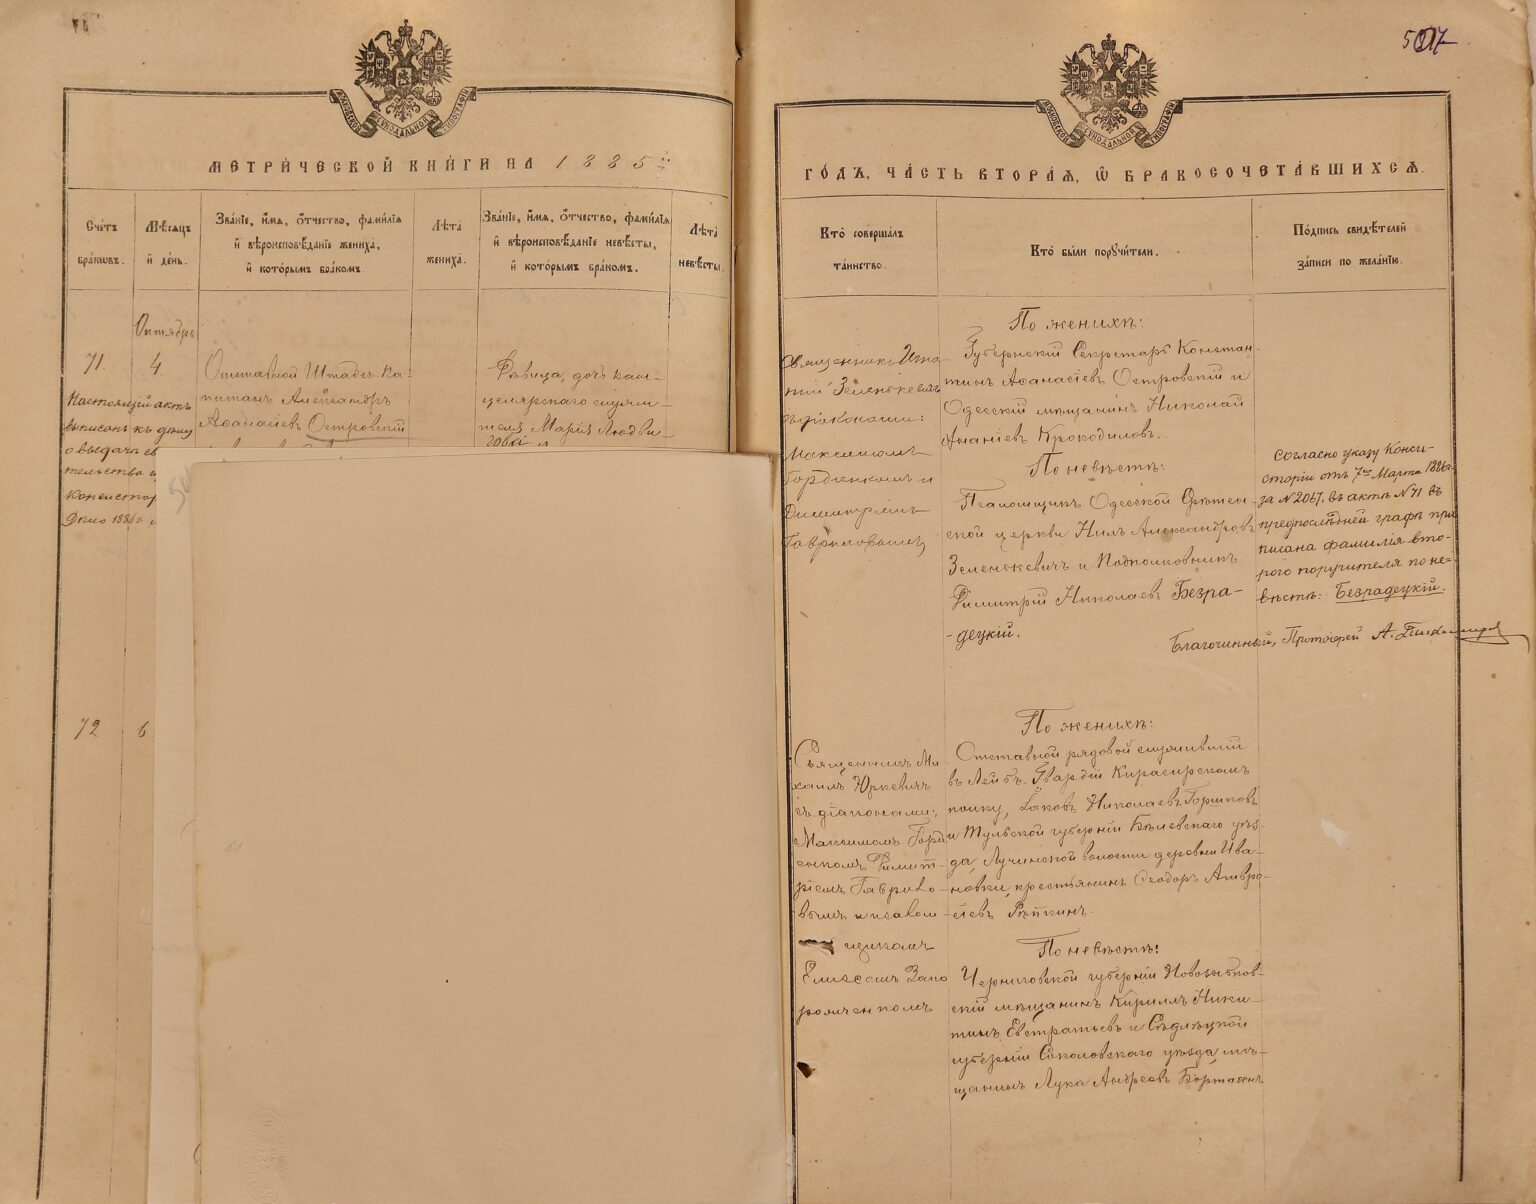 5017
МОСКОВСКОЙ СѴНОДАЛЬНОЙ ТИПОГРАФІИ
МОСКОВСКОЙ СѴНОДАЛЬНОЙ ТИПОГРАФІИ
МЕТРИ́ЧЕСКОЙ КНИ́ГИ НА 1885й
ГО́ДЪ, ЧА́СТЬ ВТОРА́Я, Ѿ БРАКОСОЧЕТА́ВШИХСЯ.
Сче́тъ
бра́кωвъ.
Мѣ́сяцъ
и҆ де́нь.
Зва́нїе, и҆́мя, ѻ҆́тчество, фами́лїя
и҆ вѣроисповѣ́данїе жениха̀,
и҆ кото́рымъ бра́комъ.
Лѣ́та
жениха̀.
Зва́нїе, и҆́мя, ѻ҆́тчество, фами́лїя
и҆ вѣроисповѣ́данїе невѣ́сты,
и҆ кото́рымъ бра́комъ.
Лѣ́та
невѣ́сты.
Кто̀ соверша́лъ
та́инство.
Кто̀ бы́ли порꙋчи́тели.
По́дпись свидѣ́телей
за́писи по жела́нїю.
Октябрь
71.
4
Настоящій актъ
выписанъ къ дѣлу
о выдачѣ св
тельства
консистор
Дѣло 1886 г.
Отставной Штабсъ-Ка-
питанъ Александръ
Аѳанасіевъ Островскій
Дѣвица, дочь кан-
целярскаго служи-
теля Марія Людви-
Священникъ Игна-
тій Зеленкевичъ
съ діаконами:
Максимомъ
Гордіенкомъ и
Димитріемъ
Гавриловымъ
По женихѣ:
Губернскій Секретарь Констан-
тинъ Аѳанасіевъ Островскій и
Одесскій мѣщанинъ Николай
Ананіевъ Крокодиловъ.
По невѣстѣ:
Псаломщикъ Одесской Срѣтен-
ской церкви Нилъ Александровъ
Зеленкевичъ и Подполковникъ
Димитрій Николаевъ Безра-
-децкій.
Согласно указу Конси-
сторіи отъ 7го Марта 1886 г.
за №2067, въ актѣ №71 въ
предпослѣдней графѣ при
писана фамилія вто-
рого поручителя по не-
вѣстѣ: Безрадецкій.
Благочинный, Протоіерей А.
72
6
Священникъ Ми
хаилъ Юркевичъ
съ діаконами:
Максимомъ Горді
енкомъ, Димит-
ріемъ Гаврило-
вымъ и псалом-
щикомъ
Елисеемъ Запо
рожченкомъ
По женихѣ:
Отставной рядовой служившій
въ Лейбъ-Гвардіи Кирасирскомъ
полку, Іаковъ Николаевъ Горшковъ
и Тульской губерніи Бѣлевскаго уѣз-
да, Лучинской волости деревни Ива-
новки, крестьянинъ Ѳеодоръ Амвро-
сіевъ Рѣпкинъ.
По невѣстѣ:
Черниговской губерніи Новозыбков-
скій мѣщанинъ Кириллъ Ники-
тинъ Евстратьевъ и Сѣдлецкой
губерніи Соколовскаго уѣзда мѣ-
щанинъ Лука Андреевъ